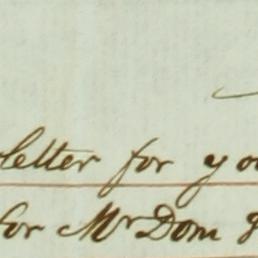 letter for yo
for Mr Dom